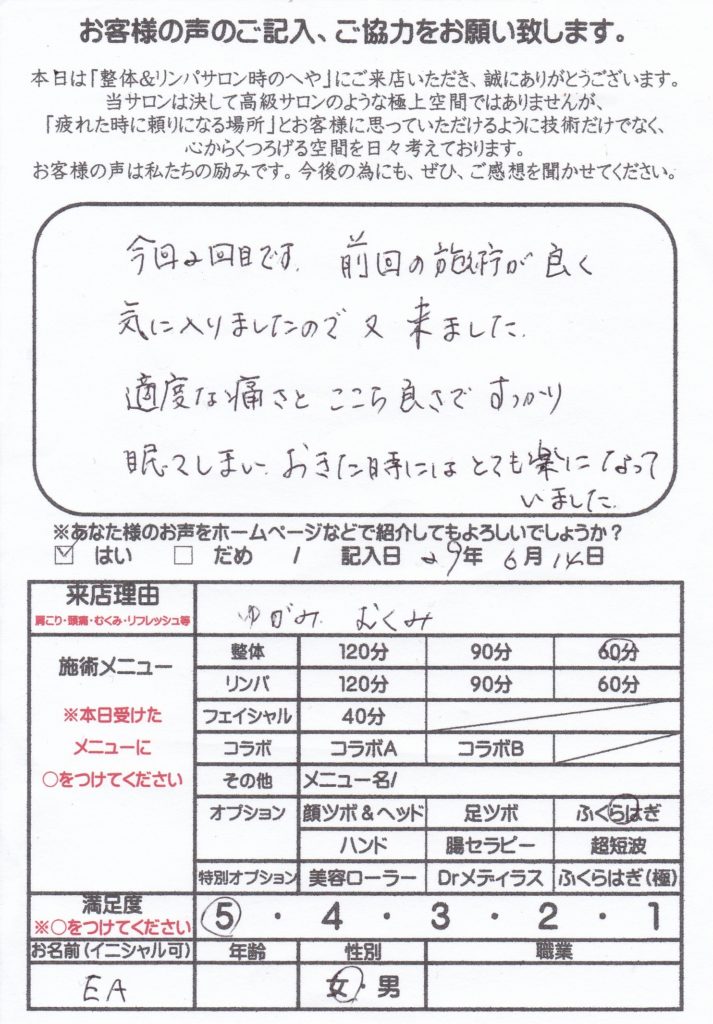 お客様の声のご記入、ご協力をお願い致します。
本日は「整体&リンパサロン時のへや」にご来店いただき、誠にありがとうございます。
当サロンは決して高級サロンのような極上空間ではありませんが、
「疲れた時に頼りになる場所」とお客様に思っていただけるように技術だけでなく、
心からくつろげる空間を日々考えております。
お客様の声は私たちの励みです。今後の為にも、ぜひ、ご感想を聞かせてください。
今回2回目です。前回の施術が良く
気に入りましたので又来ました。
適度な痛さとここち良さですっかり
眠てしまい、おきた時にはとても楽になって
いました。
※あなた様のお声をホームページなどで紹介してもよろしいでしょうか?
はい だめ / 記入日 29年 6月 14日
来店理由
肩こり・頭痛・むくみ・リフレッシュ等
ゆがみ むくみ
施術メニュー
※本日受けた
メニューに
○をつけてください
整体 120分 90分 60分
リンパ 120分 90分 60分
フェイシャル 40分
コラボ コラボA コラボB
その他 メニュー名/
オプション 顔ツボ&ヘッド 足ツボ ふくらはぎ
ハンド 腸セラピー 超短波
特別オプション 美容ローラー Drメディラス ふくらはぎ(極)
満足度
※○をつけてください
5・4・3・2・1
お名前(イニシャル可) 年齢 性別 職業
EA 女・男